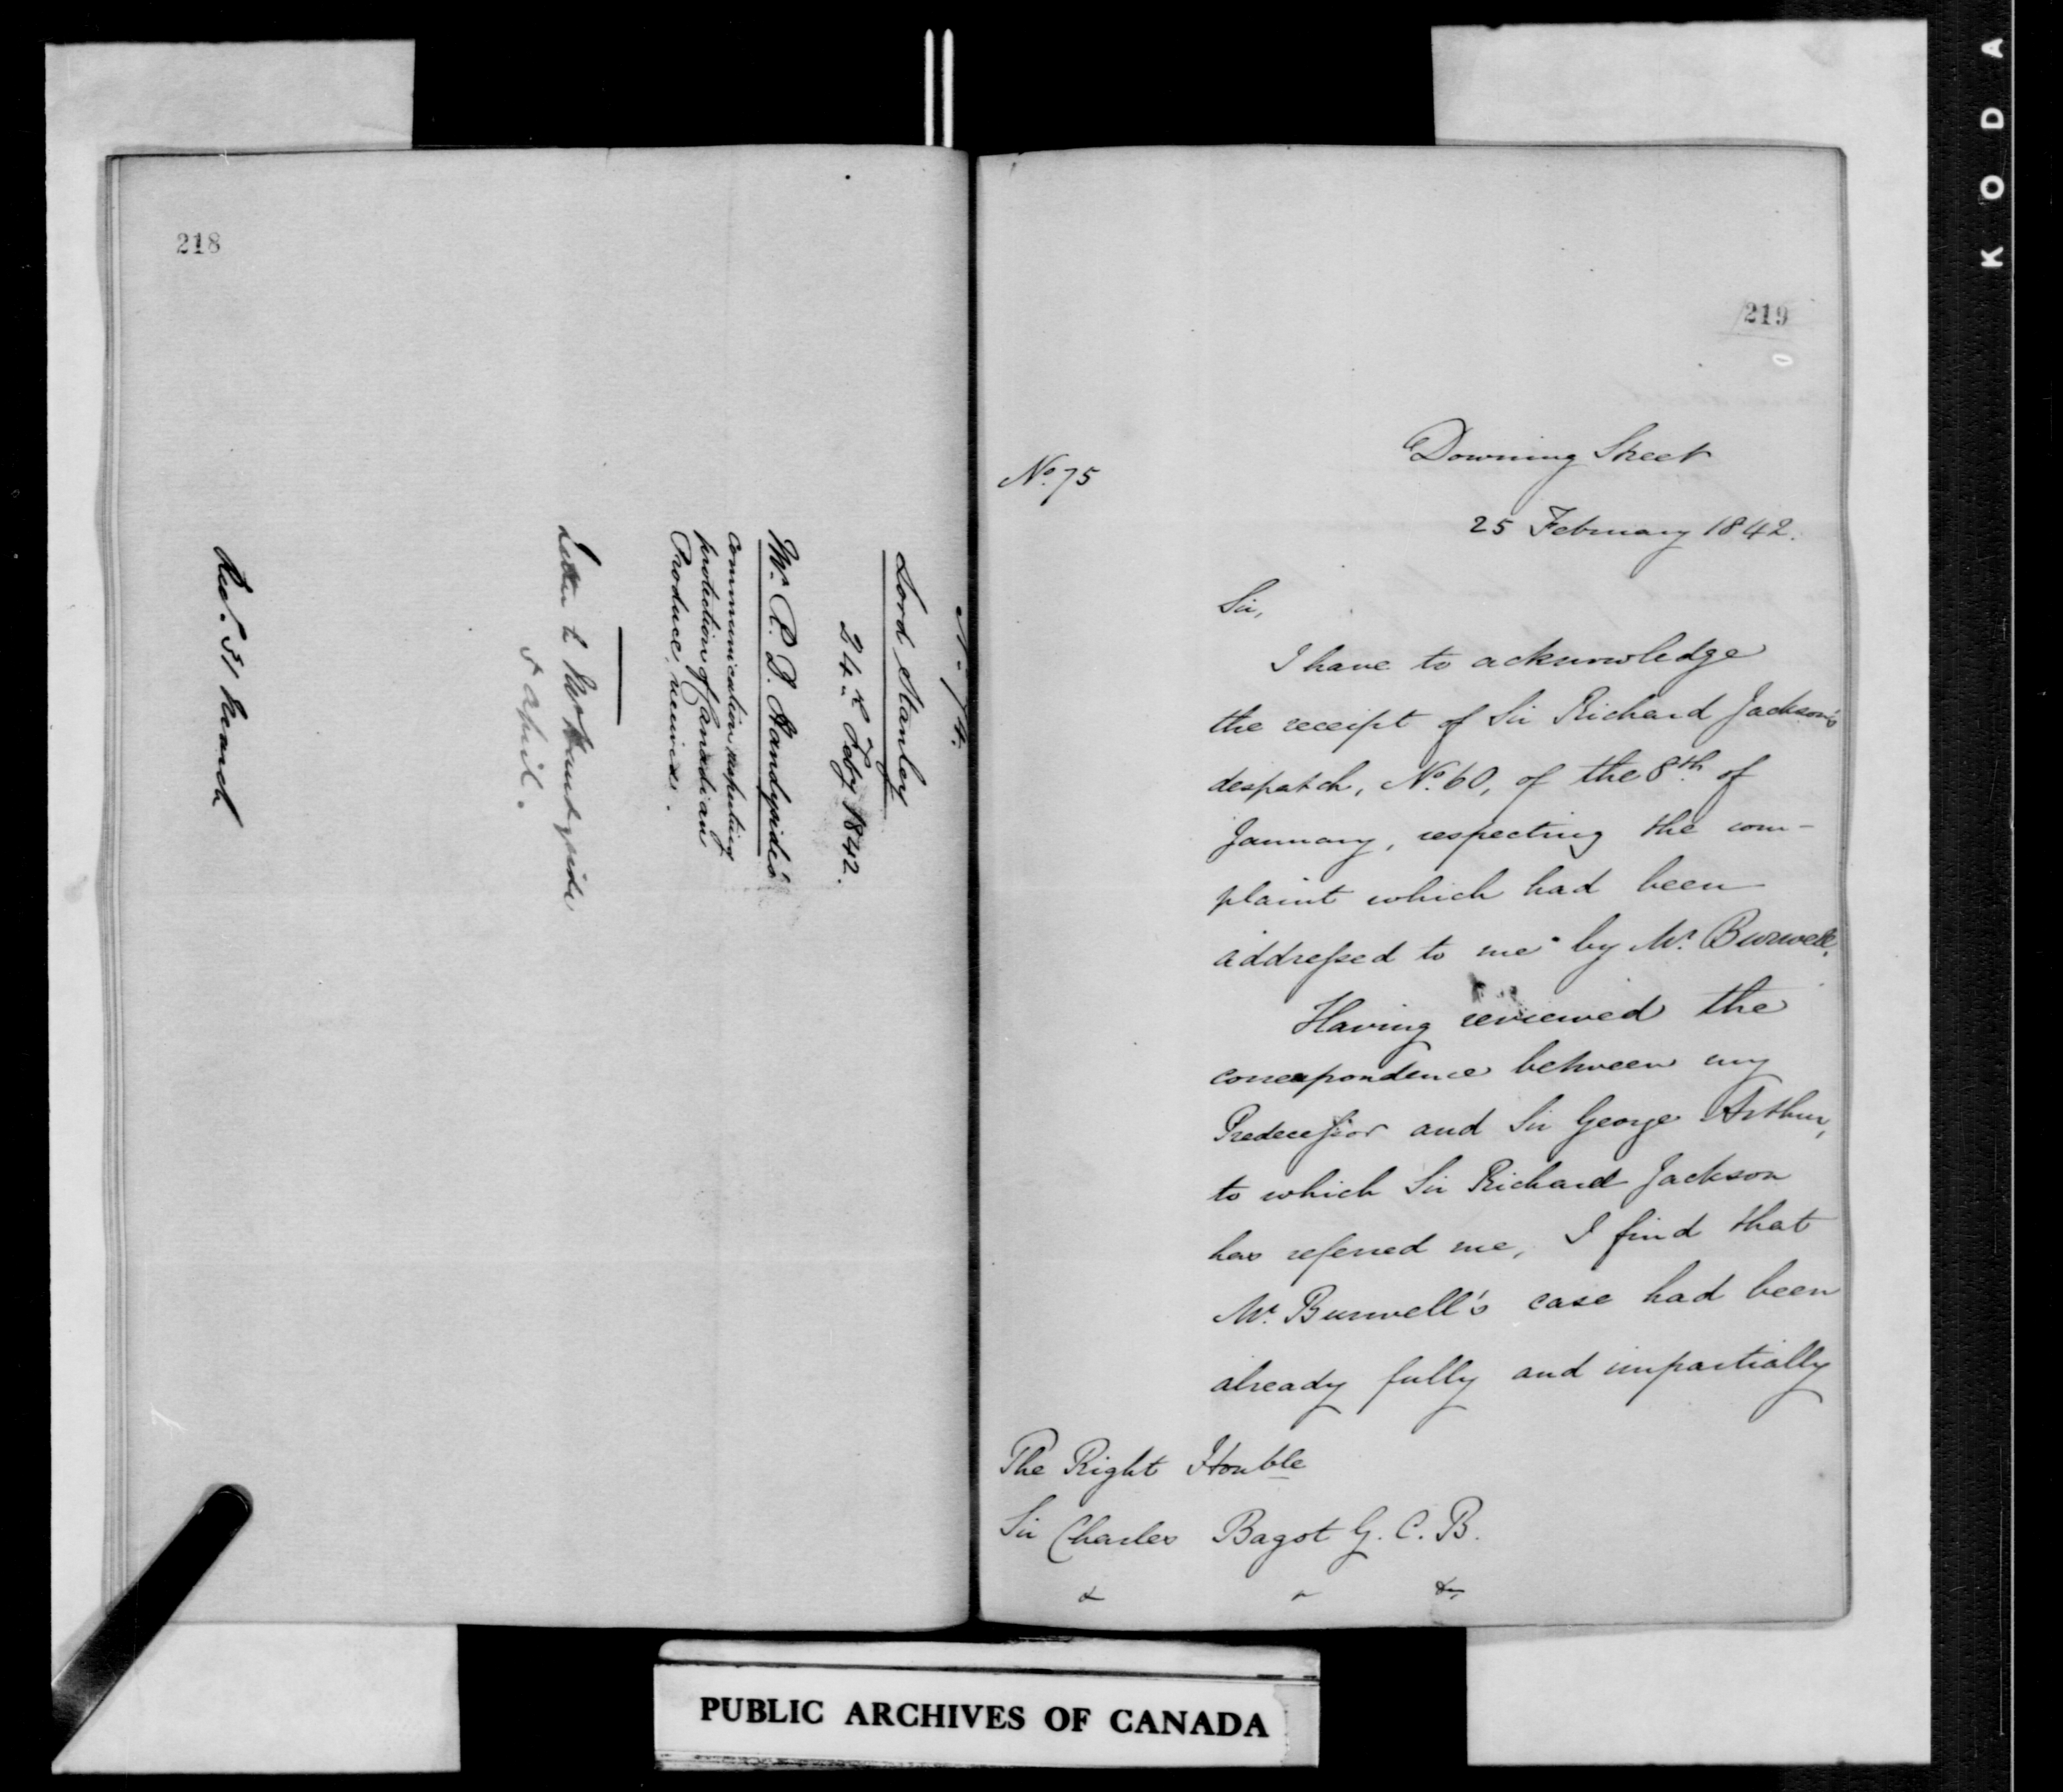 218
No. 74.
Lord Stanley
24th Feby 1842.
Mr. P. D. Handyside's
communication respecting
protection of Canadian
Produce, received.
Letter to Mr Handyside
5 April.
Recd. 31 March
219
No. 75
Downing Street
25 February 1842.
Sir,
I have to acknowledge
the receipt of Sir Richard Jackson's
despatch, No. 60, of the 8th of
January, respecting the com-
plaint which had been
addressed to me by Mr. Burwell.
Having reviewed the
correspondence between my
Predecessor and Sir George Arthur,
to which Sir Richard Jackson
has referred me, I find that
Mr. Burwell's case had been
already fully and impartially
The Right Honble
Sir Charles Bagot G. C. B.
& &
PUBLIC ARCHIVES OF CANADA
KODA